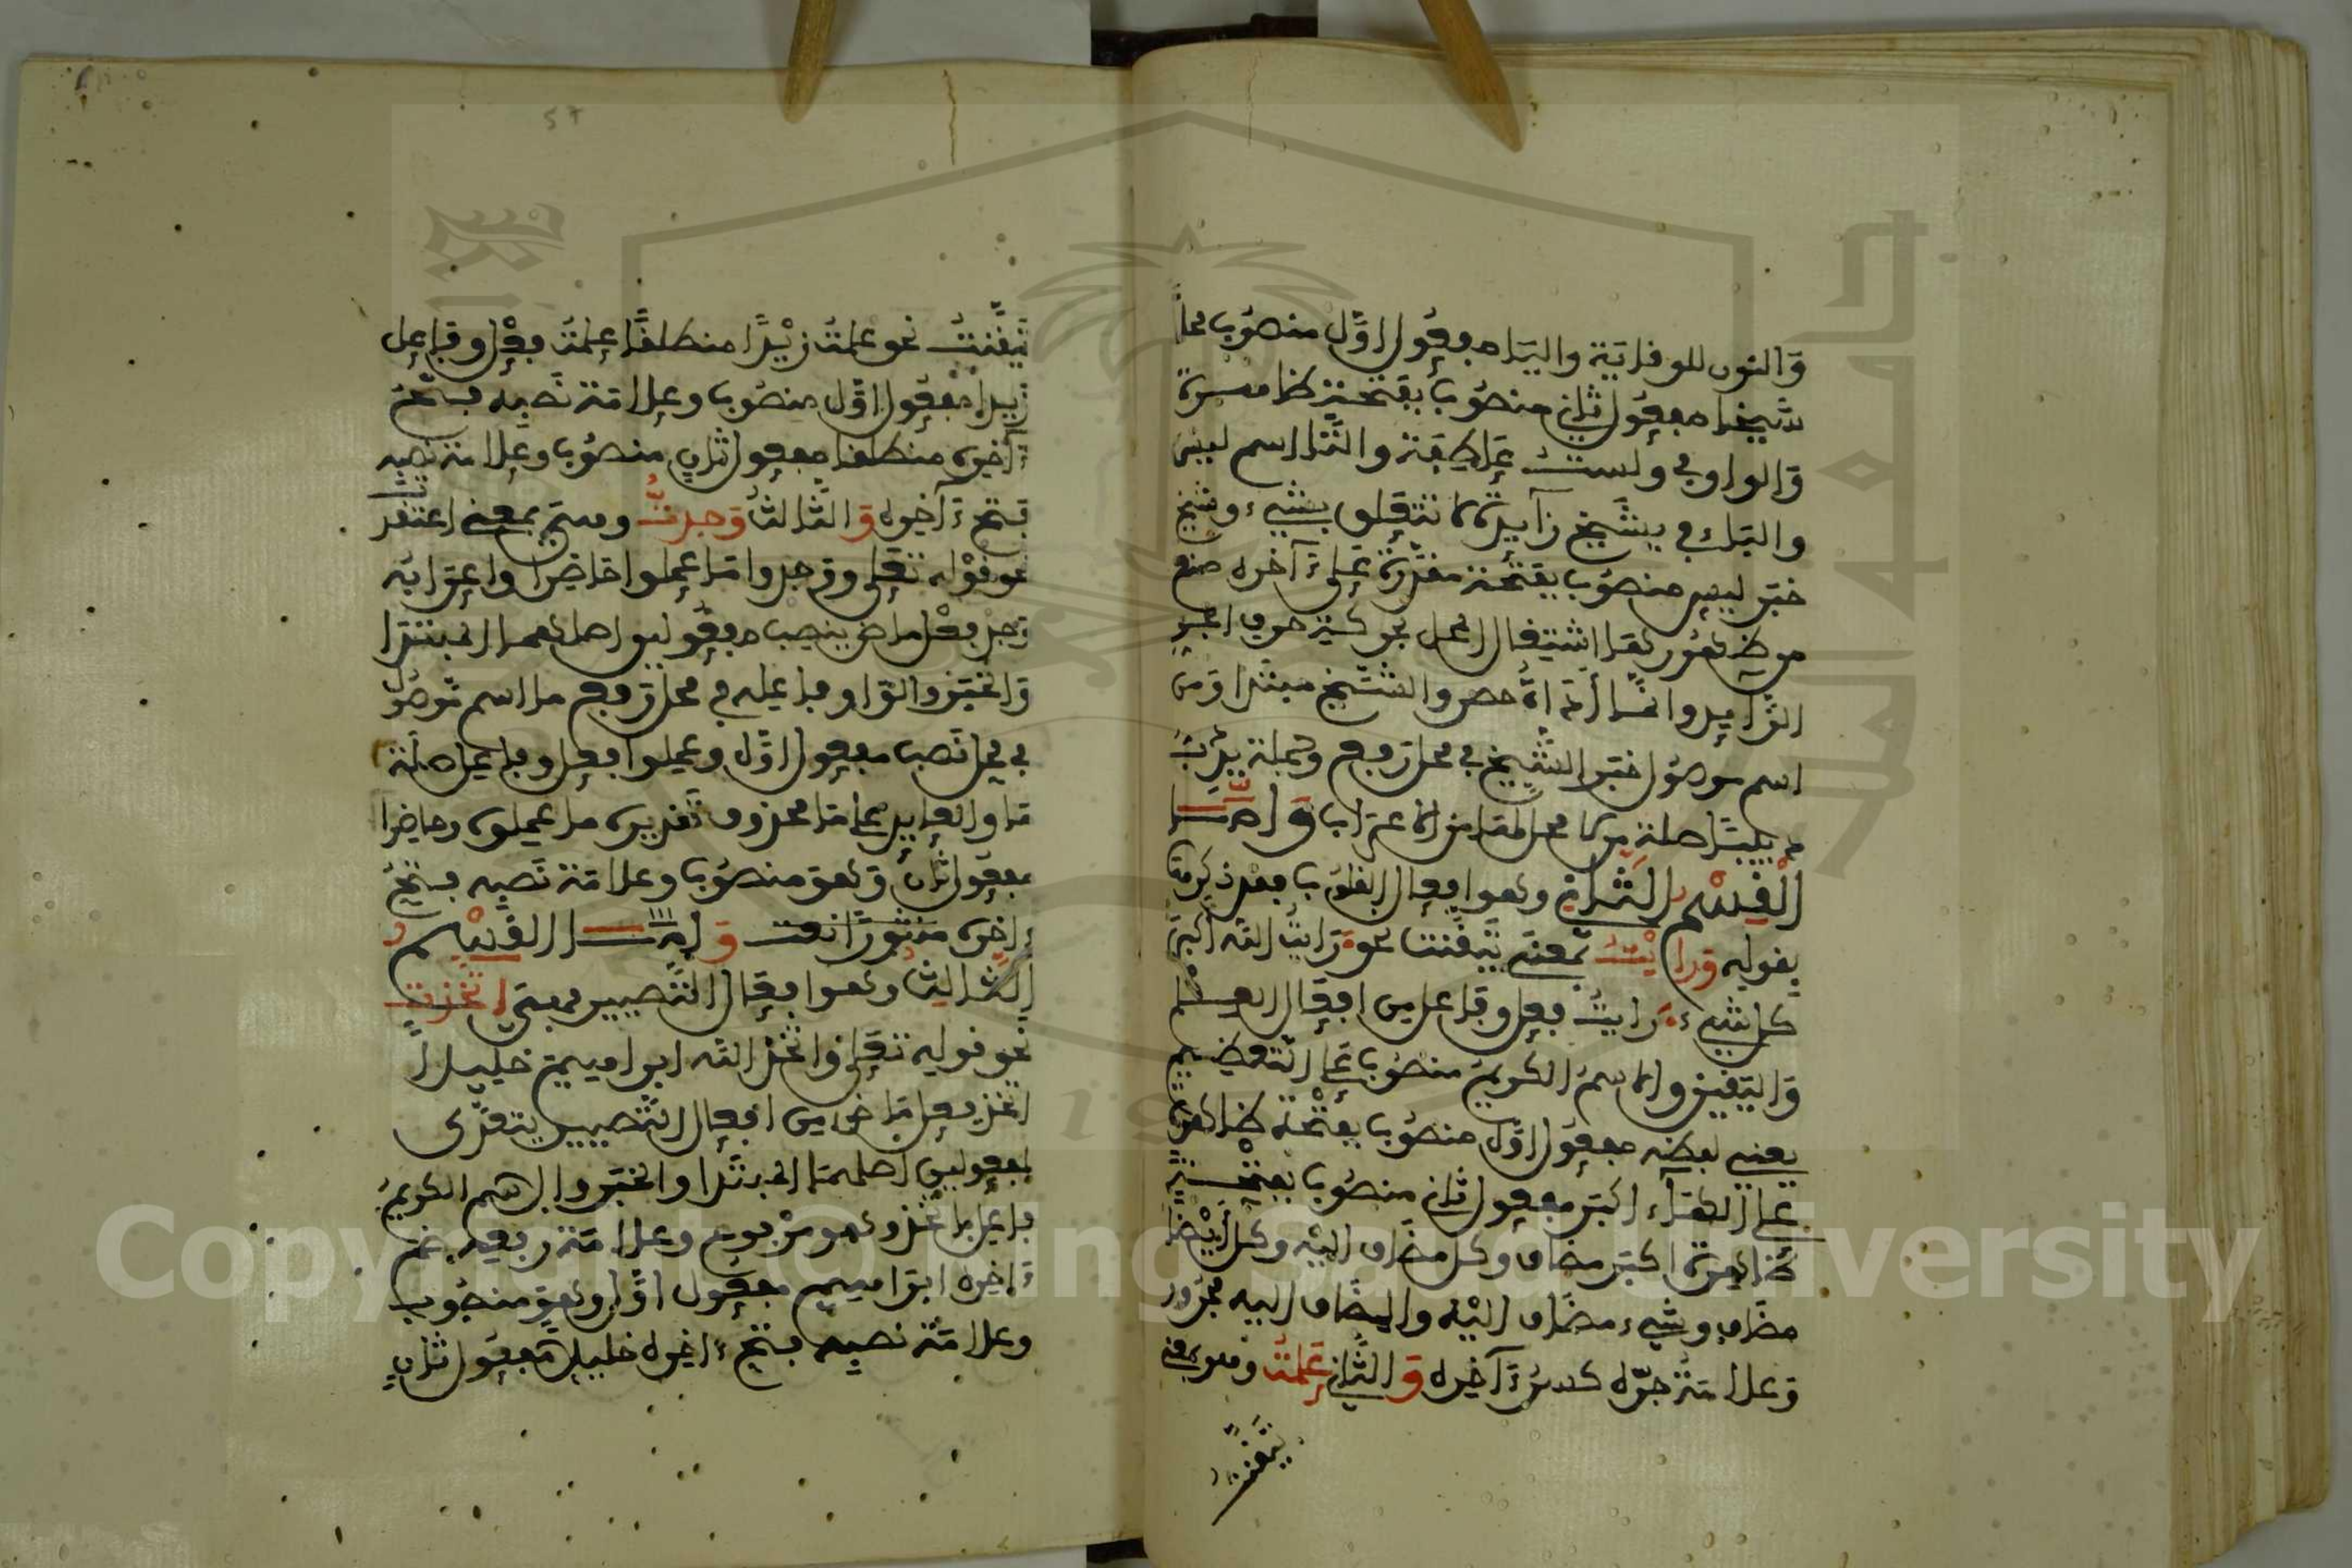 والنون للوقاية والياء مفعول اول منصوب محلا
شيخا مفعول ثان منصوب بفتحة ظاهرة
والواو في ولست عاطفة والتا اسم ليس
والباء في بشيخ زايدة لا تتعلق بشيء وشيخ
خبر ليس منصوب بفتحة مقدرة على ءاخره منع
من ظهورها اشتغال المحل بحركة حرف الجر
الزايد وانما اداة حصر والشيخ مبتدا ومن
اسم موصول خبر الشيخ في محل رفع وجملة يدب
دبيبا صلة من لا محل لها من الاعراب واما
القسم الثاني وهو افعال القلوب فقد ذكره
بقوله ورايت بمعنى تيقنت نحو رايت الله اكبر
كل شيء رايت فعل وفاعل من افعال العلم
واليقين والاسم الكريم منصوب على التعظيم
يعني لفظه مفعول اول منصوب بفتحة ظاهرة
على الهاء اكبر مفعول ثان منصوب بفتحة
ظاهرة اكبر مضاف وكل مضاف اليه وكل ايضا
مضاف وشيء مضاف اليه والمضاف اليه مجرور
وعلامة جره كسر ءاخره والثاني علمت وهو بمعنى
تيقنت
تيقنت نحو علمت زيدا منطلقا علمت فعل وفاعل
زيدا مفعول اول منصوب وعلامة نصبه فتح
ءاخره منطلقا مفعول ثان منصوب وعلامة نصبه
فتح ءاخره والثالث وجدت وهي بمعنى اعتقدت
نحو قوله تعلى ووجدوا ما عملوا حاضرا واعرابه
وجد فعل ماض ينصب مفعولين اصلهما المبتدا
والخبر والواو فاعله في محل رفع ما اسم موصول
في محل نصب مفعول اول وعملوا فعل وفاعل صلة
ما والعايد على ما محذوف تقديره ما عملوه وحاضرا
مفعول ثان وهو منصوب وعلامة نصبه فتح
ءاخره منثورا نعت واما القسم
الثالث وهو افعال التصيير فمعنى اتخذت
نحو قوله تعلى واتخذ الله ابراهيم خليلا
اتخذ فعل ماض من افعال التصيير يتعدى
لمفعولين اصلهما المبتدا والخبر والاسم الكريم
فاعل باتخذ وهو مرفوع وعلامة رفعه ضم
ءاخره ابراهيم مفعول اول وهو منصوب
وعلامة نصبه فتح ءاخره خليلا مفعول ثان
Copyright © King Saud University